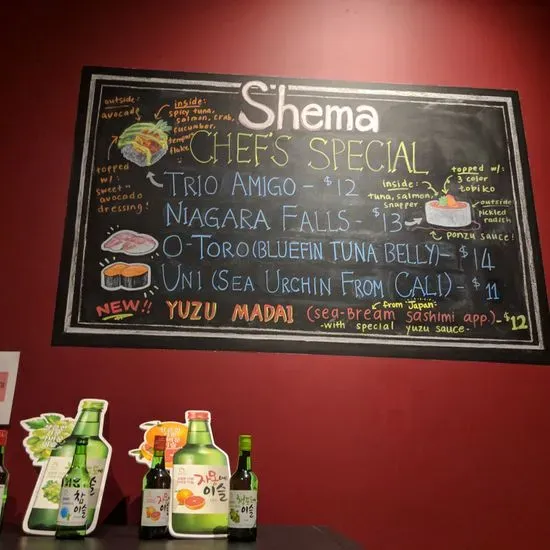 Shema
CHEF'S SPECIAL
outside:
avocado
inside:
spicy tuna,
salmon, crab,
cucumber,
tempura
flake
topped
w/:
sweet
avocado
dressing!
TRIO AMIGO - $12
NIAGARA FALLS - $13
inside:
tuna, salmon,
snapper
topped w/:
3 color
tobiko
outside
pickled
radish
ponzu sauce!
O-TORO (BLUEFIN TUNA BELLY) - $14
UNI (SEA URCHIN FROM CALI) - $11
NEW!! YUZU MADAI (sea-bream sashimi app.) - $12
from Japan
-with special yuzu sauce-
참
이슬
자몽에
이슬